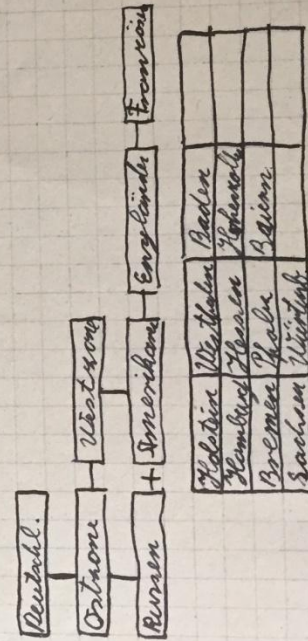 Deutschl.
Ostzone Westzone
Russen Amerikan Engländer Französe
Holstein Westfalen Baden
Hamburg Hessen Hohenzoll
Bremen Pfalz Baiern
Sachsen Würtenb